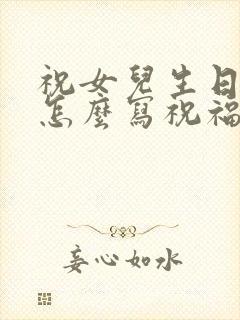 祝女兒生日
怎麼寫祝福
妾心如水